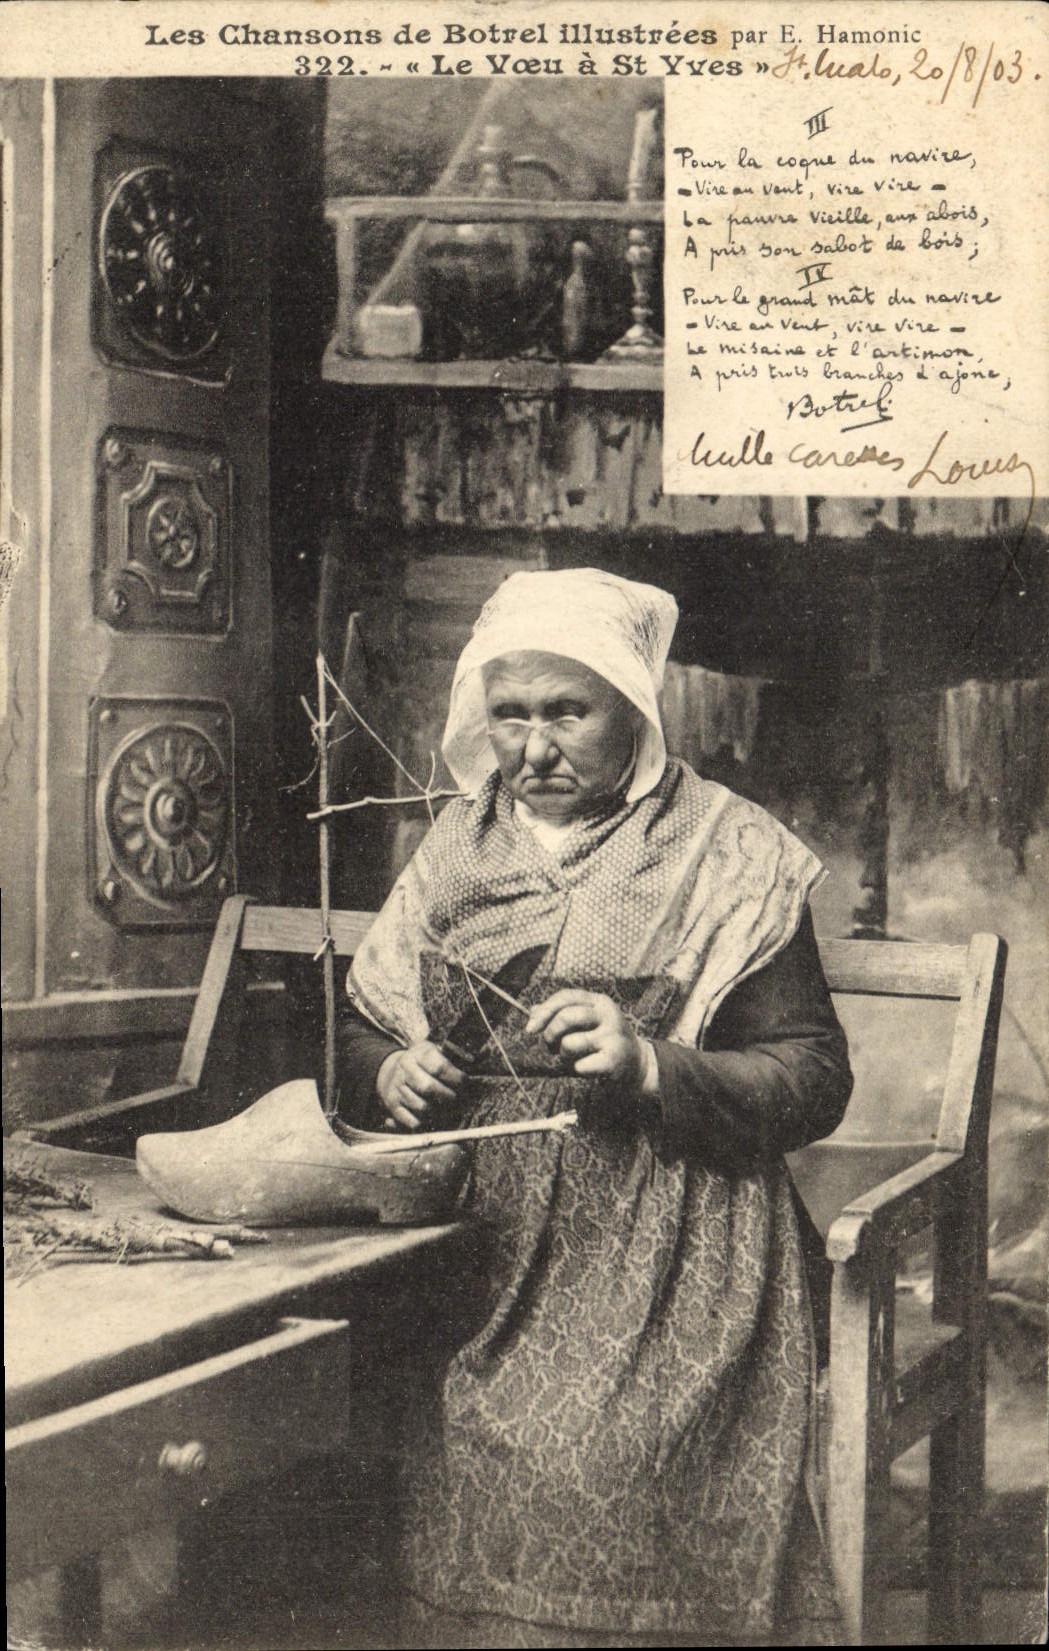 Les Chansons de Botrel illustrées par E. Hamonic
322. - « Le Vœu à St Yves » St. Malo, 20/8/03.
III
Pour la coque du navire,
- Vire au vent, vire vire -
La pauvre vieille, aux abois,
A pris son sabot de bois ;
IV
Pour le grand mât du navire
- Vire au vent, vire vire -
Le misaine et l'artimon,
A pris trois branches d'ajonc,
Botrel
Mille caresses Louis